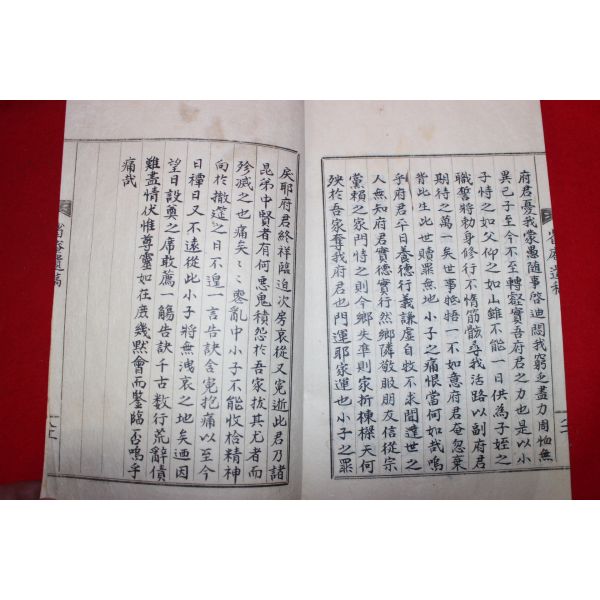 府君憂我蒙愚隨事啓迪悶我窮乏盡力周恤無
異已子至今不至轉壑實吾府君之力也是以小
子恃之如父仰之如山雖不能一日供為子姪之
職誓將勅身修行不惰筋骸尋我活路以副府君
期待之萬一矣世事牴牾一不如意府君奄忽棄
背此生此世贖罪無地小子之痛恨當何如哉嗚
乎府君平日養德行義謙虛自牧不求聞達世之
人無知府君實德實行然鄉隣敬服朋友信從宗
黨賴之家門恃之則今鄉失準則家折棟樑天何
殃於吾家奪我府君也門運耶家運也小子之罪
戾耶府君終祥臨迫次房哀從又寃逝此君乃諸
昆弟中賢者有何惡鬼積怨於吾家拔其尤者而
殄滅之也痛矣痛矣零亂中小子不能收檢精神
向於撤筵之日不遑一言告訣含寃抱痛以至今
日禫日又不遠從此小子將無洩哀之地矣迺因
望日設奠之席敢薦一觴告訣千古数行荒辭債
難盡情伏惟尊靈如在庶幾默會而鑒臨否嗚乎
痛哉
省庵遺稿